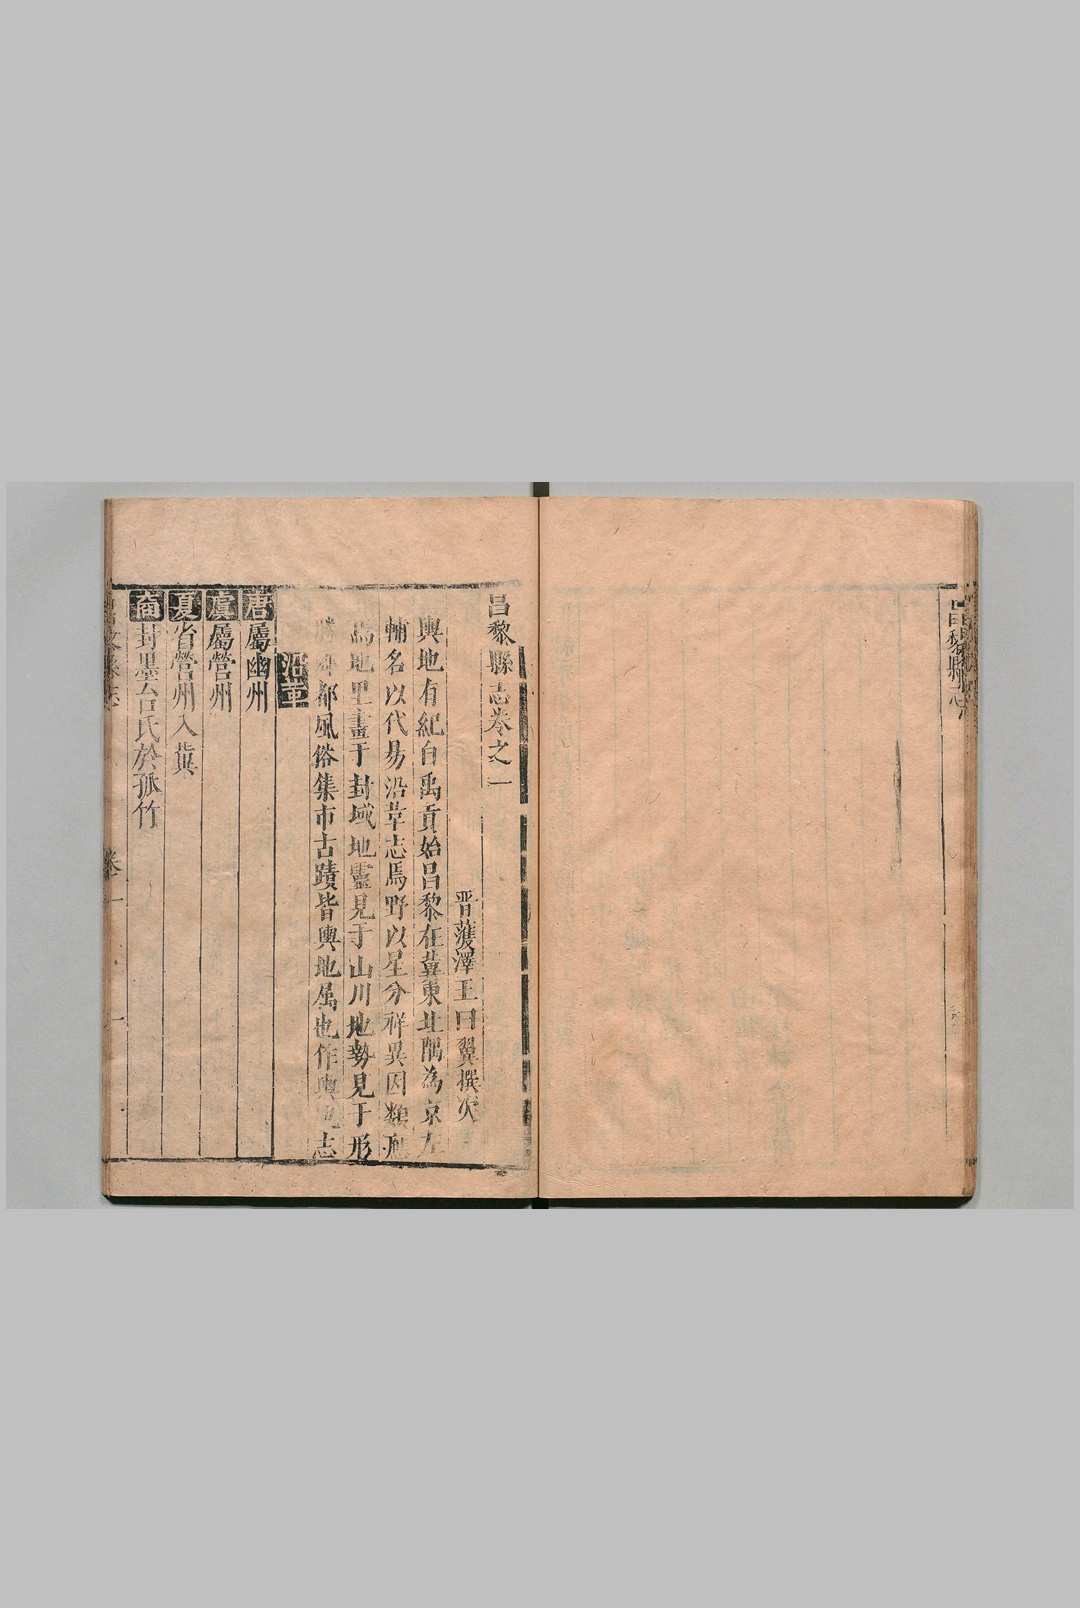 昌黎縣志
昌黎縣志卷之一
晋濩澤王曰翼撰次
輿地有紀自禹貢始昌黎在冀東北隅為京左
輔名以代易沿革志焉野以星分祥異因類應
焉地里畫于封域地靈見于山川地勢見于形
勝 都風俗集市古蹟皆輿地屬也作輿地志
沿革
唐屬幽州
虞屬營州
夏省營州入冀
商封墨台氏於孤竹
昌黎縣志
卷一
一